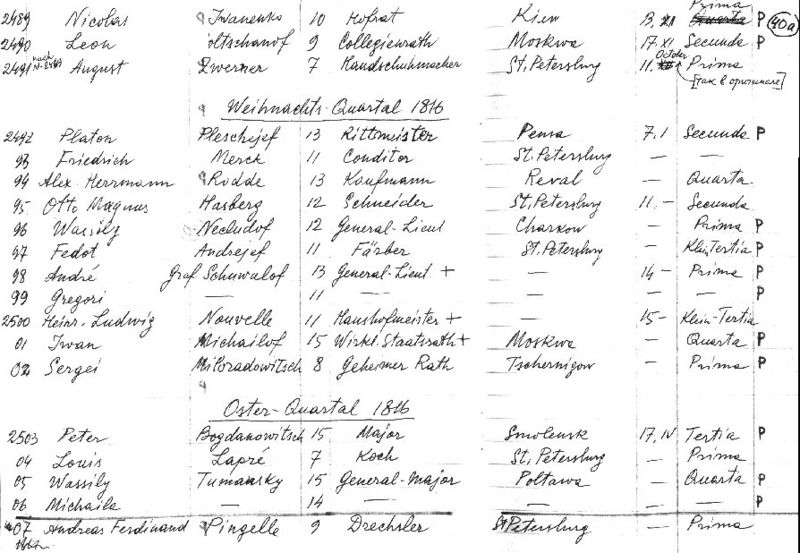 Prima
2489 Nicolas Iwanenko 10 Hofrat Kiew 13. XI Quarta P 40a
2490 Leon oltschanof 9 Collegienrath Moskwa 17. XI Secunda P
2491 nach August Zwerner 7 Handschuhmacher St. Petersburg 11. October Prima
[так в оригинале]
Weihnachts-Quartal 1816
2492 Platon Pleschejef 13 Rittmeister Pensa 7. I Secunda P
93 Friedrich Merck 11 Conditor St. Petersburg — —
94 Alex. Herrmann Rodde 13 Kaufmann Reval — Quarta
95 Otto Magnus Hasberg 12 Schneider St. Petersburg 11. — Secunda
96 Wassily Necludof 12 General-Lieut Charkow — Prima P
97 Fedot Andrejef 11 Färber St. Petersburg — Klein Tertia P
98 André Graf Schuwalof 13 General-Lieut + — 14 — Prima P
99 Gregori — 11 — — — P
2500 Heinr. Ludwig Nouvelle 11 Haushofmeister + 15 — Klein-Tertia
01 Iwan Michailof 15 Wirkl. Staatsrath + Moskwa — Quarta P
02 Sergei Miloradowitsch 8 Geheimer Rath Tschernigow — Prima P
Oster-Quartal 1816
2503 Peter Bogdanowitsch 15 Major Smolensk 17. IV Tertia P
04 Louis Lapré 7 Koch St. Petersburg — Prima
05 Wassily Tumansky 15 General-Major Poltawa — Quarta P
06 Michaila — 14 — — — — P
07 Andreas Ferdinand Pingelle 9 Drechsler St. Petersburg — Prima